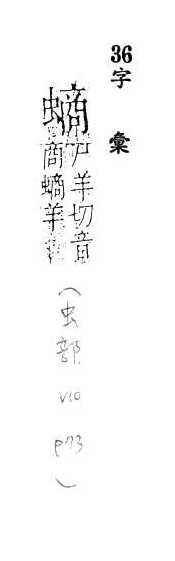 36字彙
螪
尸羊切音
商螪羊
(虫部 V10 P73)